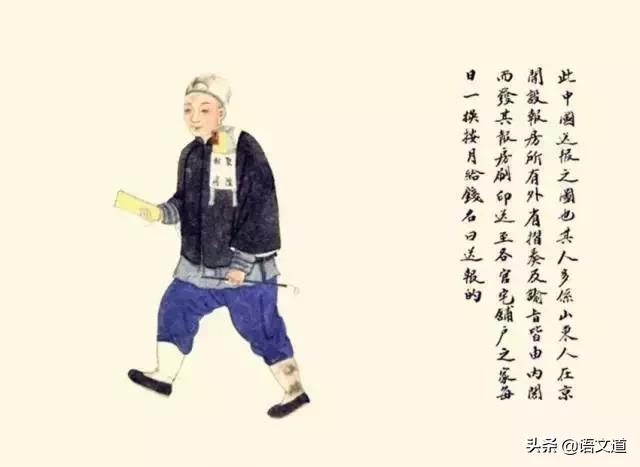 此中國送報之圖也其人多係山東人在京
開設報房所有外省摺奏及諭旨皆由内閣
而發其報房刷印送至各官宅舖户之家每
日一換按月給錢名曰送報的
头条 @语文道